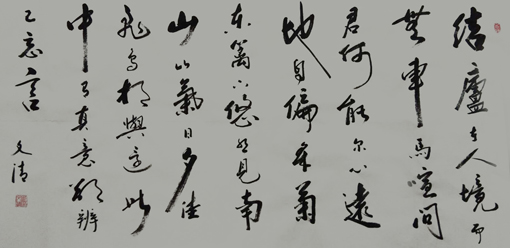 結廬在人境而
無車馬喧問
君何能尔心遠
地自偏采菊
東篱下悠然見南
山山氣日夕佳
飛鳥相與還此
中有真意欲辨
已忘言
文清